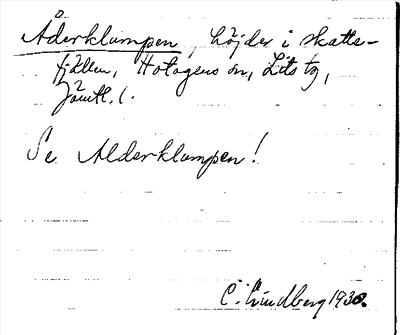 Åderklumpen, höjder i skatte-
fjällen, Hotagens sn, Lits tg,
Jämtl. l.
Se Alderklumpen!
C. Lindberg 1930.